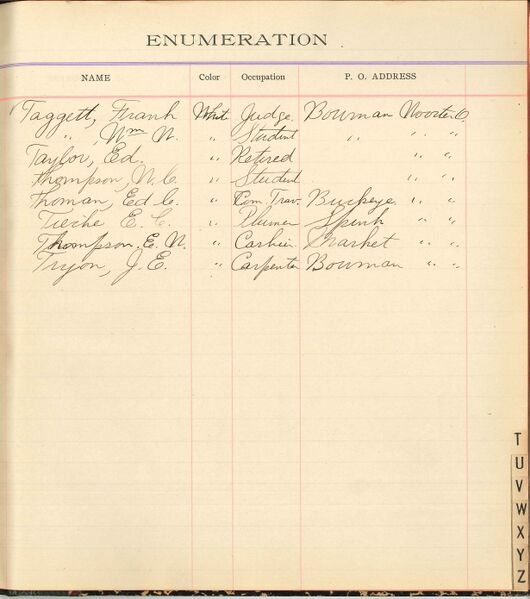 ENUMERATION
NAME Color Occupation P. O. ADDRESS
Taggett, Frank Whit Judge. Bowman Wooster O.
" , Wm N. " Student " " "
Taylor, Ed. " Retired " "
Thompson, N. C. " Student " "
Thoman, Ed C. " Com. Trav. Buckeye " "
Tieche E. C. " Plumer Spink " "
Thompson. E. N. " Cashier Market " "
Tryon, J. E. " Carpenter Bowman " "
T
U
V
W
X
Y
Z